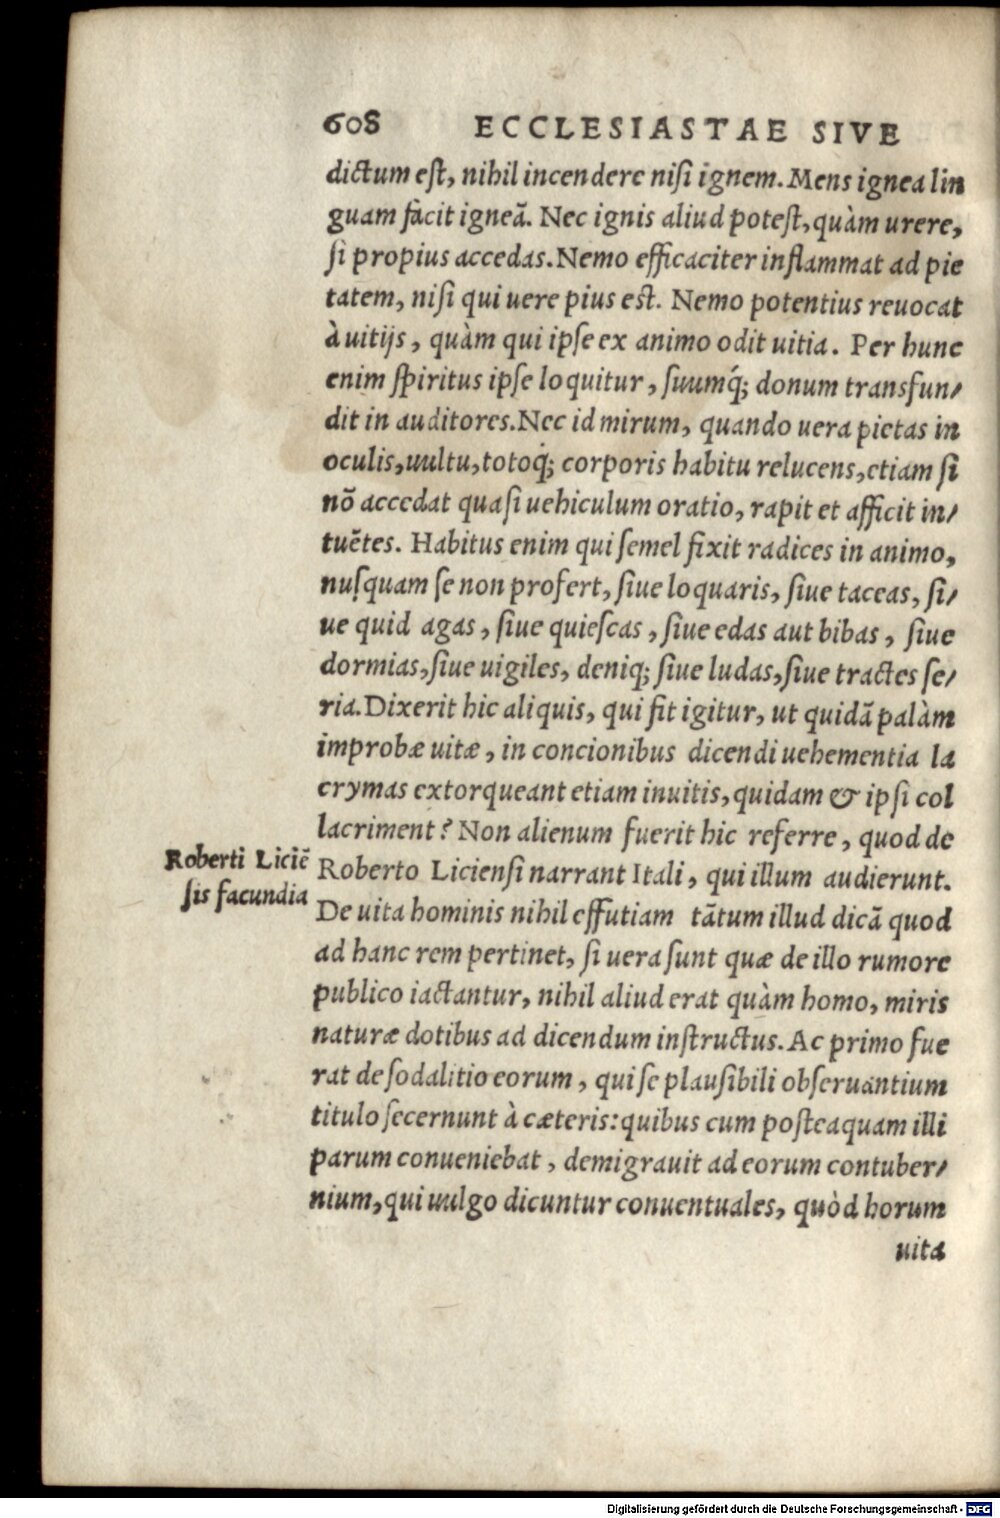 608 ECCLESIASTAE SIVE
dictum est, nihil incendere nisi ignem. Mens ignea lin
guam facit igneã. Nec ignis aliud potest, quàm urere,
si propius accedas. Nemo efficaciter inflammat ad pie
tatem, nisi qui uere pius est. Nemo potentius reuocat
à uitijs, quàm qui ipse ex animo odit uitia. Per hunc
enim spiritus ipse loquitur, suumq́; donum transfun/
dit in auditores. Nec id mirum, quando uera pietas in
oculis, uultu, totoq́; corporis habitu relucens, etiam si
nõ accedat quasi uehiculum oratio, rapit et afficit in/
tuẽtes. Habitus enim qui semel fixit radices in animo,
nusquam se non profert, siue loquaris, siue taceas, si/
ue quid agas, siue quiescas, siue edas aut bibas, siue
dormias, siue uigiles, deniq; siue ludas, siue tractes se/
ria. Dixerit hic aliquis, qui fit igitur, ut quidã palàm
improbæ uitæ, in concionibus dicendi uehementia la
crymas extorqueant etiam inuitis, quidam & ipsi col
lacriment? Non alienum fuerit hic referre, quod de
Roberti Liciẽ
sis facundia
Roberto Liciensi narrant Itali, qui illum audierunt.
De uita hominis nihil effutiam tãtum illud dicã quod
ad hanc rem pertinet, si uera sunt quæ de illo rumore
publico iactantur, nihil aliud erat quàm homo, miris
naturæ dotibus ad dicendum instructus. Ac primo fue
rat de sodalitio eorum, qui se plausibili obseruantium
titulo secernunt à cæteris: quibus cum posteaquam illi
parum conueniebat, demigrauit ad eorum contuber/
nium, qui uulgo dicuntur conuentuales, quòd horum
uita
Digitalisierung gefördert durch die Deutsche Forschungsgemeinschaft - DFG